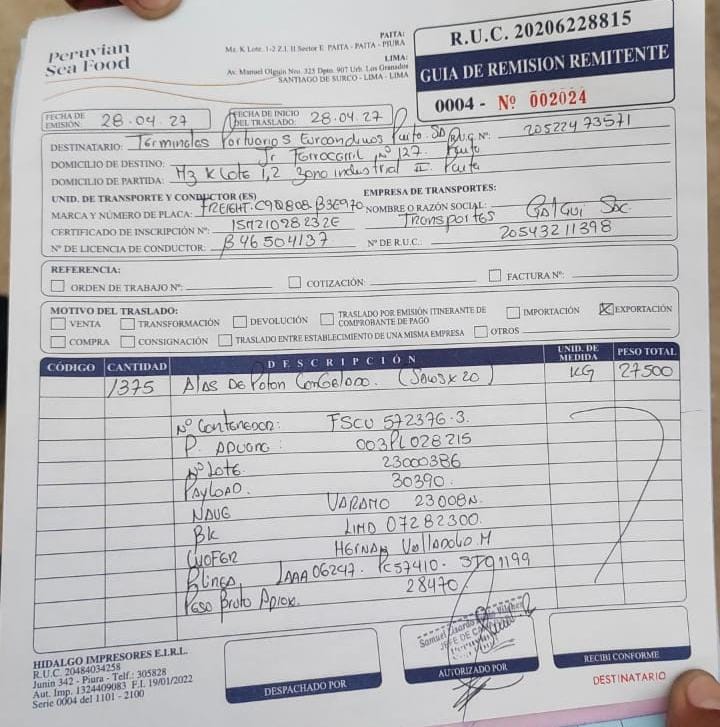 Peruvian
Sea Food
PAITA:
Mz. K Lote. 1-2 Z.I. II Sector E PAITA - PAITA - PIURA
LIMA:
Av. Manuel Olguin Nro. 325 Dpto. 907 Urb. Los Granados
SANTIAGO DE SURCO - LIMA - LIMA
R.U.C. 20206228815
GUIA DE REMISION REMITENTE
0004 - Nº 002024
FECHA DE EMISIÓN: 28.04.27
FECHA DE INICIO DEL TRASLADO: 28.04.27
DESTINATARIO: Términales Portuarios Euroandinos Paita. SA R.U.C. Nº: 20522473571
DOMICILIO DE DESTINO: Jr Ferrocarril Nº 127. Paita
DOMICILIO DE PARTIDA: Mz K Lote 1,2 Zona industrial II. Paita
UNID. DE TRANSPORTE Y CONDUCTOR (ES) EMPRESA DE TRANSPORTES:
MARCA Y NÚMERO DE PLACA: FREIGHT. NOMBRE O RAZÓN SOCIAL: Transportes SAC.
CERTIFICADO DE INSCRIPCIÓN Nº: 15M21098232E
Nº DE LICENCIA DE CONDUCTOR: B46504137 Nº DE R.U.C.: 20543211398
REFERENCIA:
ORDEN DE TRABAJO Nº: COTIZACIÓN: FACTURA Nº:
MOTIVO DEL TRASLADO:
VENTA TRANSFORMACIÓN DEVOLUCIÓN TRASLADO POR EMISIÓN ITINERANTE DE COMPROBANTE DE PAGO IMPORTACIÓN X EXPORTACIÓN
COMPRA CONSIGNACIÓN TRASLADO ENTRE ESTABLECIMIENTO DE UNA MISMA EMPRESA OTROS
CÓDIGO CANTIDAD DESCRIPCIÓN UNID. DE MEDIDA PESO TOTAL
1375 Alas De Poton Congelado. (Sacos x 20) KG 27500
Nº Contenedor: FSCU 572376-3.
P. ADUANA: 003PL028215
Nº Lote. 23000386
PAYLOAD. 30390.
NAVE VARAMO 23008N.
BK LIMD 07282300.
CHOFER HERNAN Valladolid M
Linea, IAAA06247. PC57410.
Peso Bruto Aprox. 28470.
HIDALGO IMPRESORES E.I.R.L.
R.U.C. 20484034258
Junin 342 - Piura - Telf.: 305828
Aut. Imp. 1324409083 F.I. 19/01/2022
Serie 0004 del 1101 - 2100
DESPACHADO POR
Samuel
JEFE DE
AUTORIZADO POR
RECIBI CONFORME
DESTINATARIO